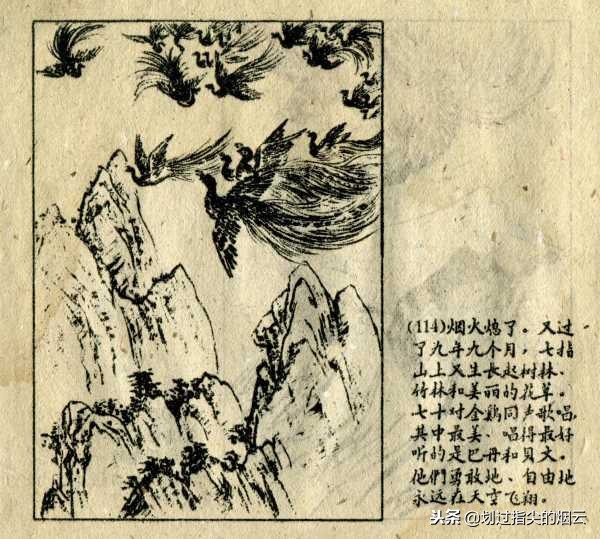 (114)烟火熄了。又过
了九年九个月，七指
山上又生長起树林、
竹林和美丽的花草。
七十对金鷄同声歌唱，
其中最美、唱得最好
听的是巴丹和贝文。
他們勇敢地、自由地
永远在天空飞翔。
头条 @划过指尖的烟云